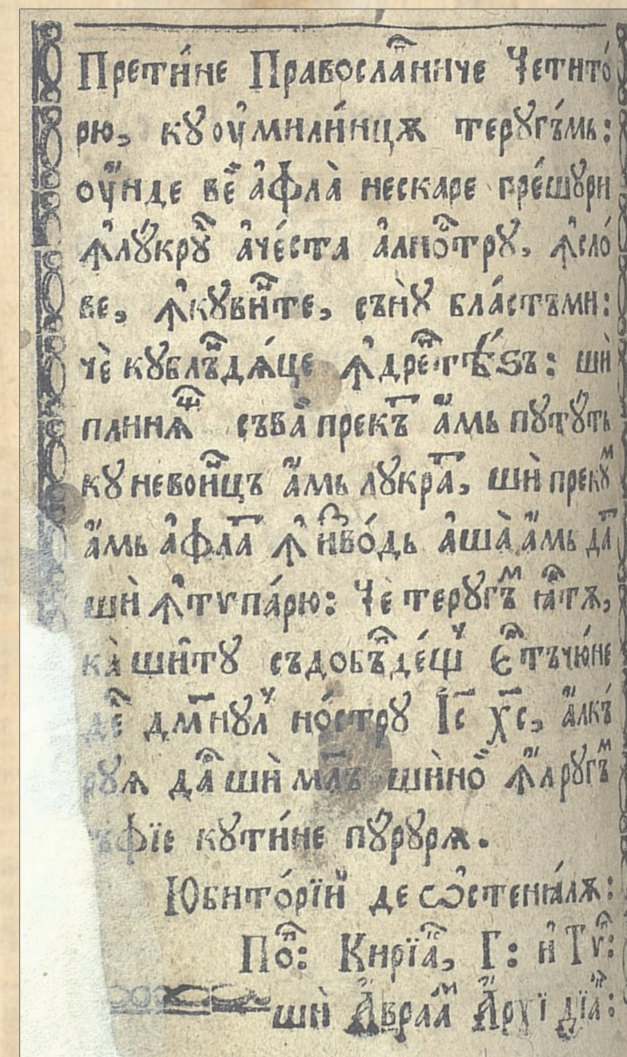 Претїне Правосла́вниче Четито́
рю, ку оу҆мили́нцѫ теругъ́мь:
оу҆́нде ве̑ а҆фла̀ нескаре грешѫри
ꙟлꙋкрꙋ а҆че́ста а҆лно́тру, ꙟсло́
ве, ꙟкувинте, сънꙋ бла́стъми:
чѐ кублъдѧ́це ꙟдре́птѣꙃъ: шѝ
съва прекъ а҆́мь путꙋ́ть
ку невои́нцъ а҆́мь лукра, шѝ прекꙋм
а҆́мь а҆фла ꙟ и҆зво́дь а҆ша̀ а҆́мь да
шѝ ꙟтѵпа́рю: Че теругъм ꙗ҆ртѫ,
ка̀ шѝтꙋ съдобъде́щй е҆ртъчю́не
де дм҃нул но́стру І҆с҃ х҃с, а҆лкъ́
руѧ да́р шѝ ми́лъ шѝно ꙟ҆лругъм
съфїе кути́не пꙋ́руре.
Юбито́рїй де ѡ҆стенѧ́лѫ:
По҃п: Кирїа́к, Г: и҆ Тѵп:
шѝ А҆враа́м А҆рхїдїа́: